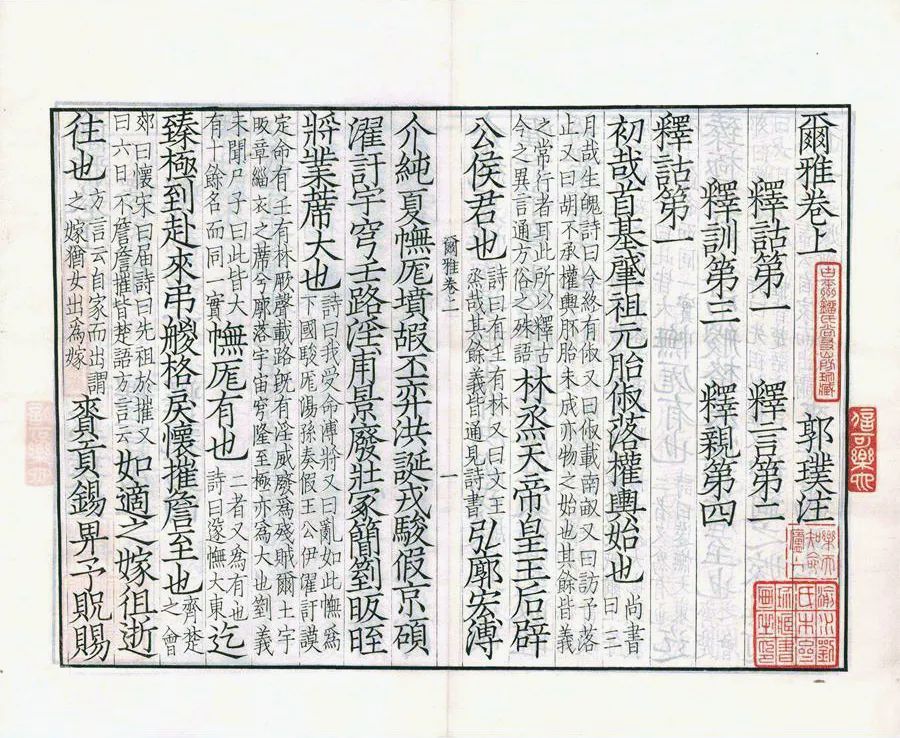 爾雅卷上 郭璞注
釋詁第一 釋言第二
釋訓第三 釋親第四
釋詁第一
初哉首基肈祖元胎俶落權輿始也 尚書曰三
月哉生魄詩曰令終有俶又曰俶載南畝又曰訪予落
止又曰胡不承權輿胚胎未成亦物之始也其餘皆義
之常行者耳此所以釋古今之異言通方俗之殊語 林烝天帝皇王后辟
公侯君也 詩曰有壬有林又曰文王烝哉其餘義皆通見詩書 弘廓宏溥
爾雅卷二 一
介純夏幠厖墳嘏丕弈洪誕戎駿假京碩
濯訏宇穹壬路淫甫景廢壯冢簡箌昄晊
將業蓆大也 詩曰我受命溥將又曰亂如此幠為下國駿厖湯孫奏假王公伊濯訏謨
定命有壬有林厥聲載路既有淫威廢為殘賊爾土宇
昄章緇衣之蓆兮廓落宇宙穹隆至極亦為大也箌義
未聞尸子曰此皆大有十餘名而同一實 幠厖有也 二者又為有也詩曰遂幠大東 迄
臻極到赴來弔艐格戾懷摧詹至也 齊楚之會
郊曰懷宋曰届詩曰先祖於摧又曰六日不詹詹摧皆楚語方言云 如適之嫁徂逝
往也 方言云自家而出謂之嫁猶女出為嫁 賚貢錫畀予貺賜
信可樂也